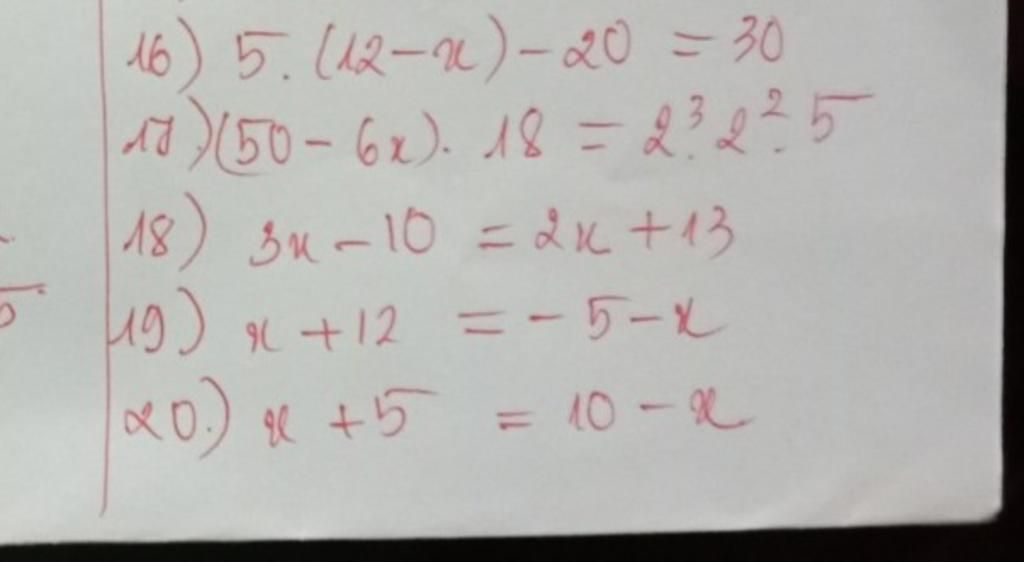 16) 5.(12-x)-20 = 30
17)(50-6x). 18 = 2³.2².5
18) 3x-10 = 2x+13
19) x+12 = -5-x
20.) x+5 = 10-x